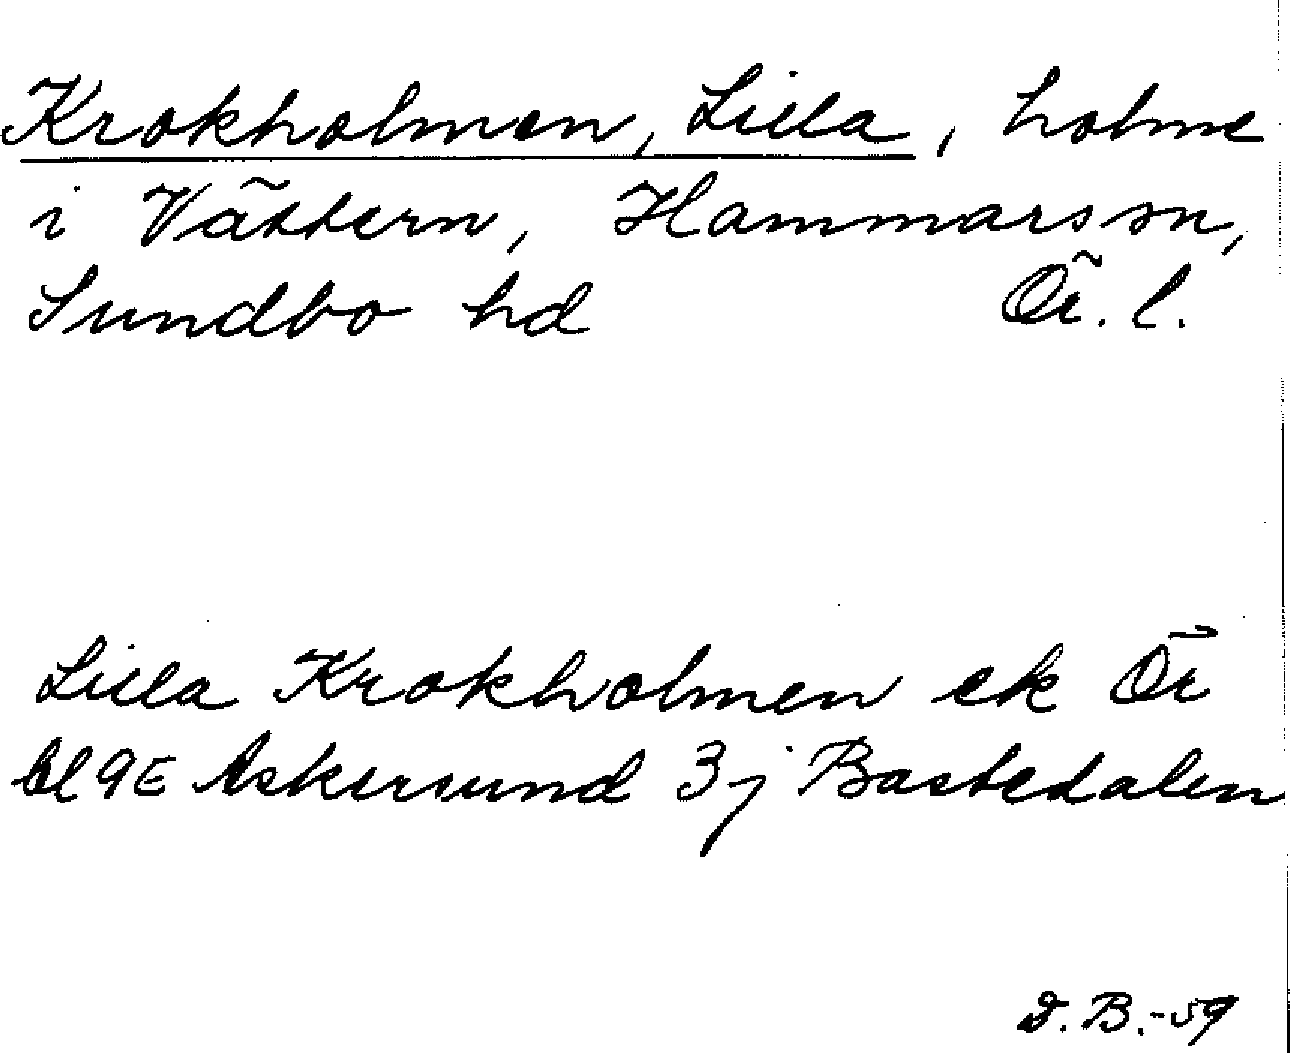 Krokholmen, Lilla, holme
i Vättern, Hammars sn,
Sundbo hd Ör. l.
Lilla Krokholmen ek Ör
bl 9E Askersund 3j Bastedalen
D. B.-59